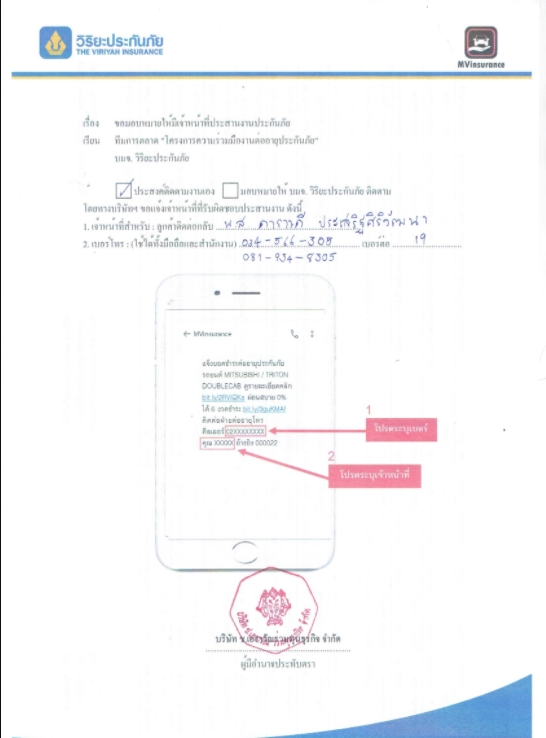 วิริยะประกันภัย
THE VIRIYAH INSURANCE
MVinsurance
เรื่อง ขอมอบหมายให้มีเจ้าหน้าที่ประสานงานประกันภัย
เรียน ทีมการตลาด "โครงการความร่วมมืองานต่ออายุประกันภัย"
บมจ. วิริยะประกันภัย
ประสงค์ติดตามงานเอง มอบหมายให้ บมจ. วิริยะประกันภัย ติดตาม
โดยทางบริษัทฯ ขอแจ้งเจ้าหน้าที่ที่รับผิดชอบประสานงาน ดังนี้
1. เจ้าหน้าที่สำหรับ : ลูกค้าติดต่อกลับ น.ส ดาราวดี ประเสริฐศิริวัฒนา
2. เบอร์โทร : (ใช้ได้ทั้งมือถือและสำนักงาน) 034-566-305 เบอร์ต่อ 19
081-934-8305
← MVinsurance
แจ้งยอดชำระต่ออายุประกันภัย
รถยนต์ MITSUBISHI / TRITON
DOUBLECAB ดูรายละเอียดคลิก
ผ่อนสบาย 0%
ได้ 6 งวดชำระ
ติดต่อฝ่ายต่ออายุโทร
ดีลเลอร์ 02XXXXXXX
คุณ XXXXX อ้างอิง 000022
1
โปรดระบุเบอร์
2
โปรดระบุเจ้าหน้าที่
บริษัท ช.เอราวัณร่วมทุนธุรกิจ จำกัด
ผู้มีอำนาจประทับตรา